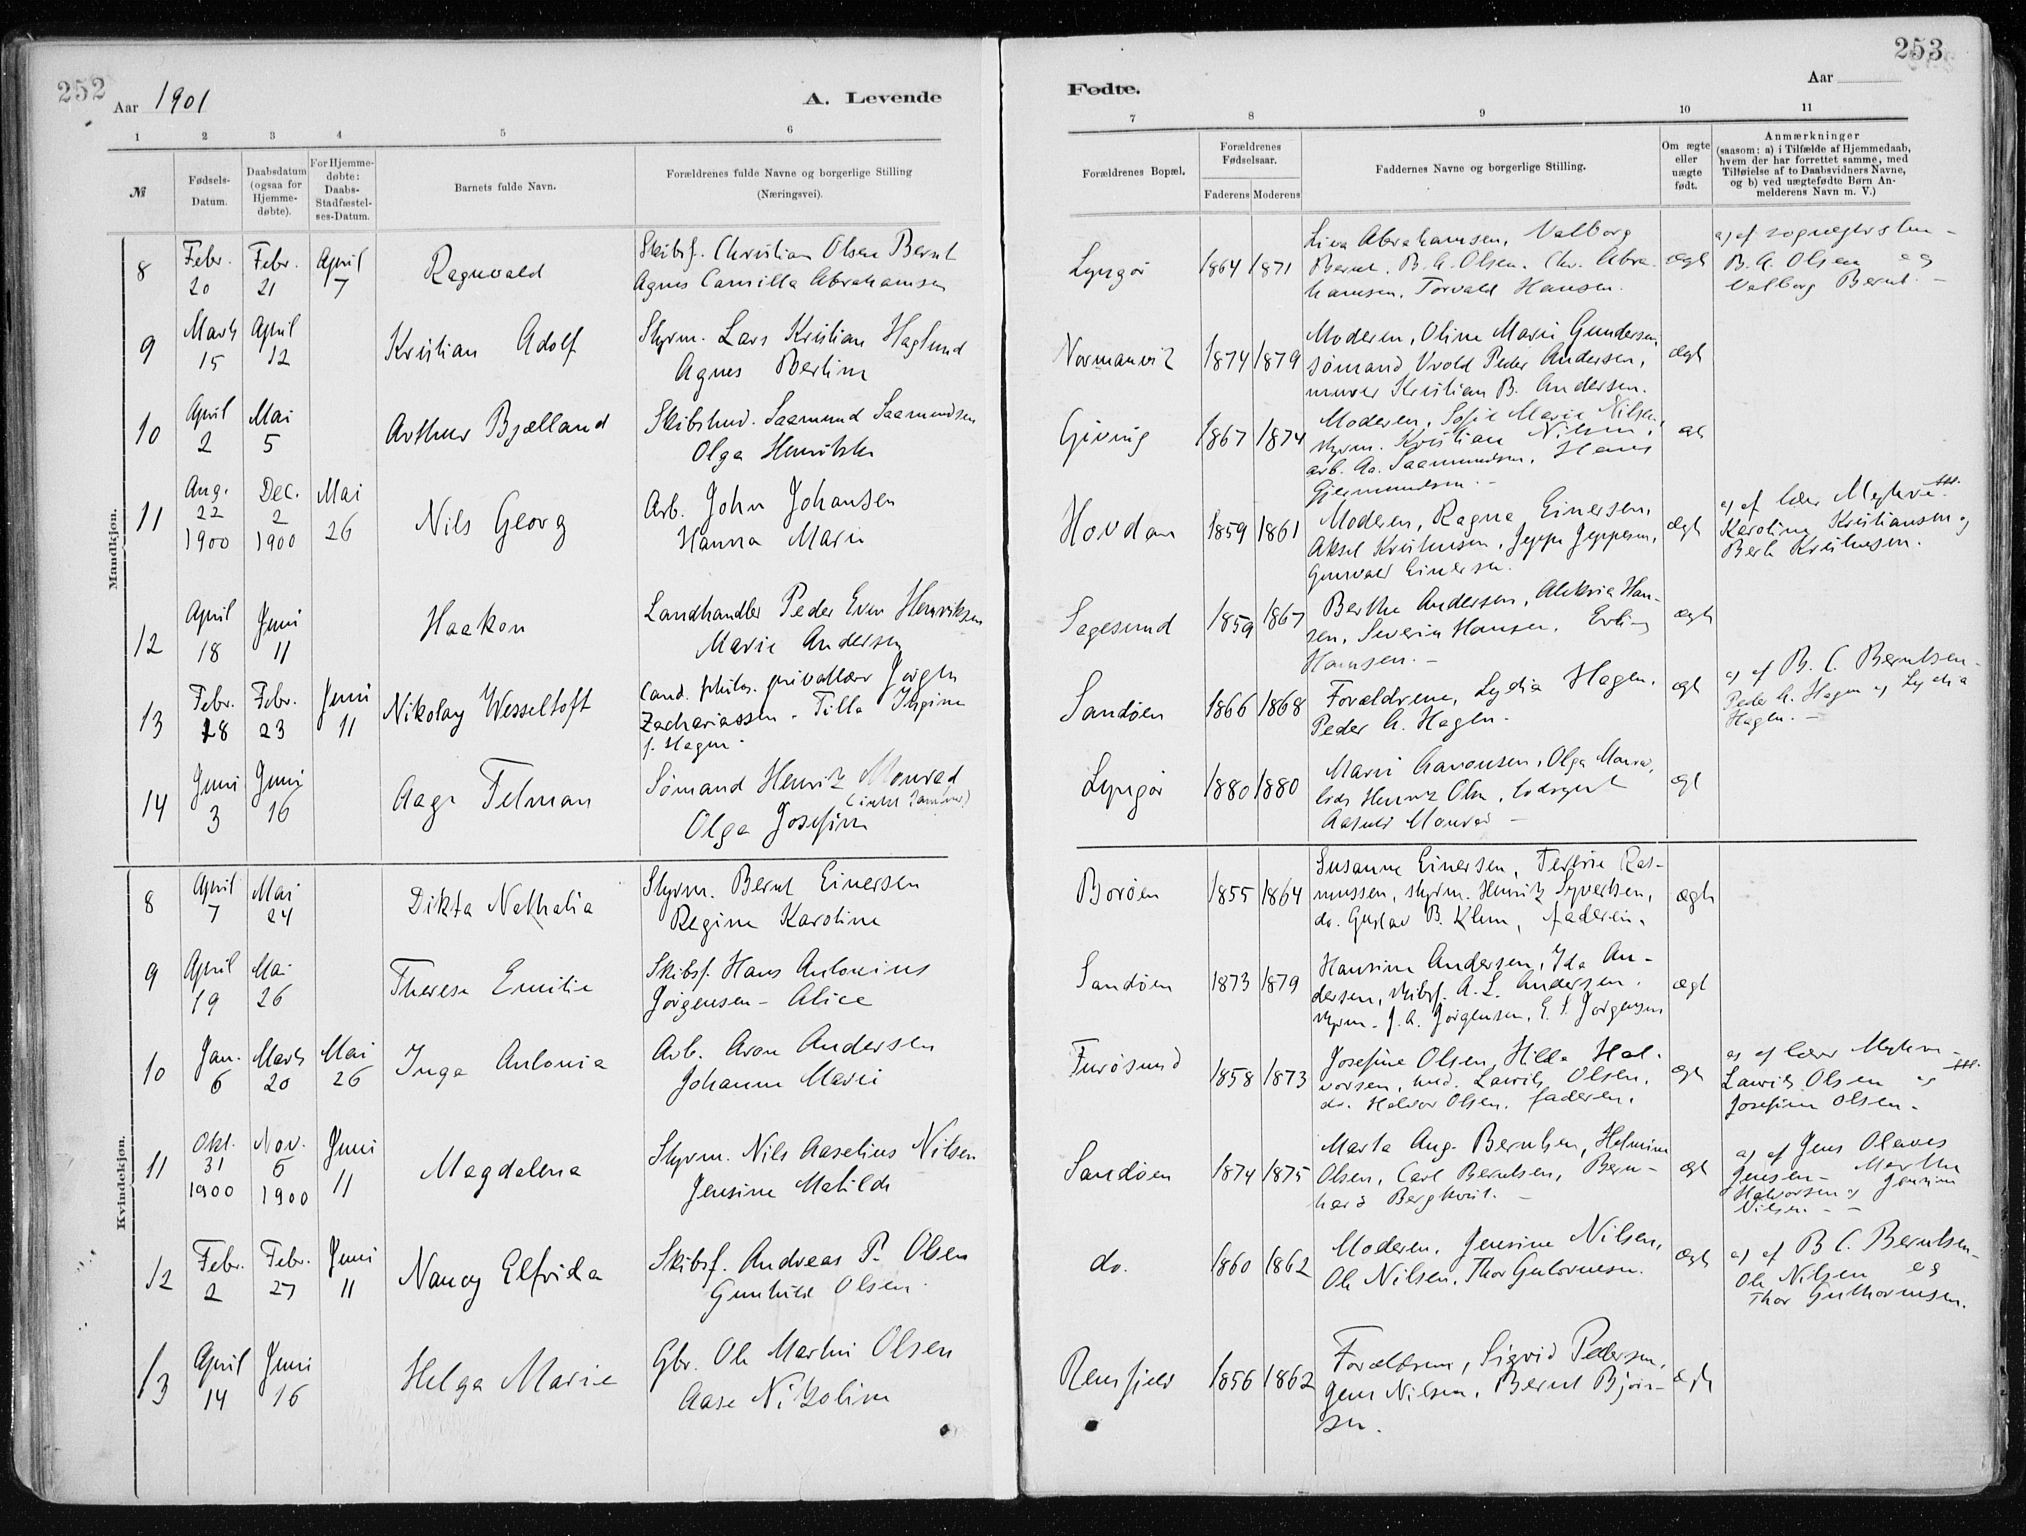 252
Aar 1901
A. Levende
1 2 3 4 5 6
№
Fødsels-
Datum.
Daabsdatum
(ogsaa for
Hjemme-
døbte).
For Hjemme-
døbte:
Daabs-
Stadfæstel-
ses-Datum.
Barnets fulde Navn.
Forældrenes fulde Navne og borgerlige Stilling
(Næringsvei).
Mandkjøn.
8 Febr. 20 Febr. 21 April 7 Ragnvald
Skibsf. Christian Olsen Bernt
Agnes Camilla Abrahamsen
9 Marts 15 April 12 Kristian Adolf
Styrm. Lars Kristian Haglund
Agnes Bertine
10 April 2 Mai 5 Arthur Bjælland
Saamund Saamundsen
Olga Henrikke
11 Aug. 22 1900 Dec. 2 1900 Mai 26 Nils Georg
Arb. John Johansen
Hanna Marie
12 April 18 Juni 11 Haakon
Landhandler Peder Even Henriksen
Marie Andersen
13 Febr. 18 Febr. 23 Juni 11 Nikolay Wesseltoft
Cand. philos. privatlærer Jørgen
Zachariassen - Tilla
f. Hagen.
14 Juni 3 Juni 16 Aage Telman
Sømand Henrik Monrad
Olga Josefine
Kvindekjøn.
8 April 7 Mai 24 Dikta Nathalia
Styrm. Bernt Einersen
Regine Karoline
9 April 19 Mai 26 Therese Emilie
Skibsf. Hans Antonius
Jørgensen - Alice
10 Jan. 6 Marts 20 Mai 26 Inga Antonia
Arb. Aron Andersen
Johanne Marie
11 Okt. 31 1900 Nov. 6 1900 Juni 11 Magdalena
Styrm. Nils Aaselius Nilsen
Jensine Matilde
12 Febr. 2 Febr. 27 Juni 11 Nancy Elfrida
Skibsf. Andreas P. Olsen
Gunhild Olsen.
13 April 14 Juni 16 Helga Marie
Gbr. Ole Martin Olsen
Aase Nikoline
253
Fødte.
Aar
7 8 9 10 11
Forældrenes Bopæl.
Forældrenes
Fødselsaar.
Faderens Moderens
Faddernes Navne og borgerlige Stilling.
Om ægte
eller
uægte
født.
Anmærkninger
(saasom: a) i Tilfælde af Hjemmedaab,
hvem der har forrettet samme, med
Tilføielse af to Daabsvidners Navne,
og b) ved uægtefødte Børn An-
melderens Navn m. V.)
Lyngør 1864 1871
Lina Abrahamsen, Valborg
Bernt, B. A. Olsen, Chr. Abra-
hamsen, Torvald Hansen.
ægte
a) af
B. A. Olsen og
Valborg Bernt. -
Normanvik 1874 1879
Moderen, Oline Marie Gundersen,
sømand Peder Andersen,
murer Kristian B. Andersen.
ægte
Giving 1867 1874
Moderen, Sofie Marie Nilsen,
styrm. Kristian Nilsen,
arb. Aa. Saamundsen, Hans
Gjermundsen. -
æt
Hovdan 1859 1861
Moderen, Ragna Einersen,
Aksel Kristensen, Jeppe Jeppesen,
Gunvald Einersen.
ægte
a) af lærer Myhre.
Karoline Kristiansen og
Kristensen.
Sagesund 1859 1867
Berthe Andersen, Han-
sen, Severin Hansen, Erling
Hansen. -
ægte
Sandøen 1866 1868
Forældrene, Lydia Hagen,
Peder A. Hagen.
ægt
a) af B. C. Berntsen -
Peder A. Hagen og Lydia
Hagen. -
Lyngør 1880 1880
Marie Aanonsen, Olga Monra,
lods Henrik Olsen, lodsgut
Monrad -
ægt
Borøen 1855 1864
Susanne Einersen, Terene Ras-
mussen, styrm. Henrik Syvertsen,
do. Gustav B. Klem, faderen.
ægte
Sandøen 1873 1879
Hansine Andersen, Ida An-
dersen, skibsf. A. L. Andersen,
styrm. J. A. Jørgensen, E. S. Jørgensen
ægt
Furøsund 1858 1873
Josefine Olsen, Hilda Hal-
vorsen, Laurits Olsen,
do. Halvor Olsen, faderen.
ægte
a) af lærer Myhre -
Laurits Olsen og
Josefine Olsen.
Sandøen 1874 1875
Marta Aug. Berntsen, Helmine
Olsen, Carl Berntsen, Bern-
hard Bergkvist. -
ægt
a) af Jens Olaves
Jensen - Marthe
Halvorsen og Jensine
Nilsen. -
do. 1860 1862
Moderen, Jensine Nilsen,
Ole Nilsen, Thor Guttormsen.
ægte
a) af B. C. Berntsen -
Ole Nilsen og
Thor Guthormsen.
Rensfjeld 1856 1862
Forældrene, Sigvid Pedersen,
Jens Nilsen, Bernt Bjørn-
sen.
ægte